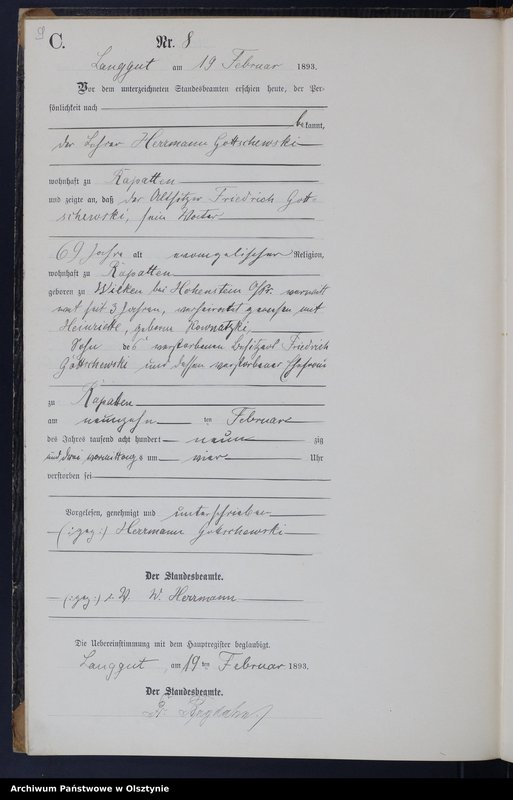 C.
Nr. 8
Langgut am 19 Februar 1893.
Vor dem unterzeichneten Standesbeamten erschien heute, der Per-
sönlichkeit nach
bekannt,
der Lehrer Herrmann Gottschewski
wohnhaft zu Rapatten
und zeigte an, daß der Altsitzer Friedrich Gott-
schewski, sein Vater
69 Jahre alt evangelischer Religion,
wohnhaft zu Rapatten
geboren zu Wilken bei Hohenstein O/Pr. verwitt
wet seit 3 Jahren, verheirathet gewesen mit
Heinriette, geborne Kownatzki,
Sohn des verstorbenen Besitzers Friedrich
Gottschewski und dessen verstorbener Ehefrau
zu Rapatten
am neunzehn ten Februar
des Jahres tausend acht hundert neun zig
und drei, vormittags um vier Uhr
verstorben sei
Vorgelesen, genehmigt und unterschrieben
(:gez:) Herrmann Gottschewski
Der Standesbeamte.
(:gez:) i. V. W. Herrmann
Die Uebereinstimmung mit dem Hauptregister beglaubigt.
Langgut, am 19 ten Februar 1893.
Der Standesbeamte.
Archiwum Państwowe w Olsztynie